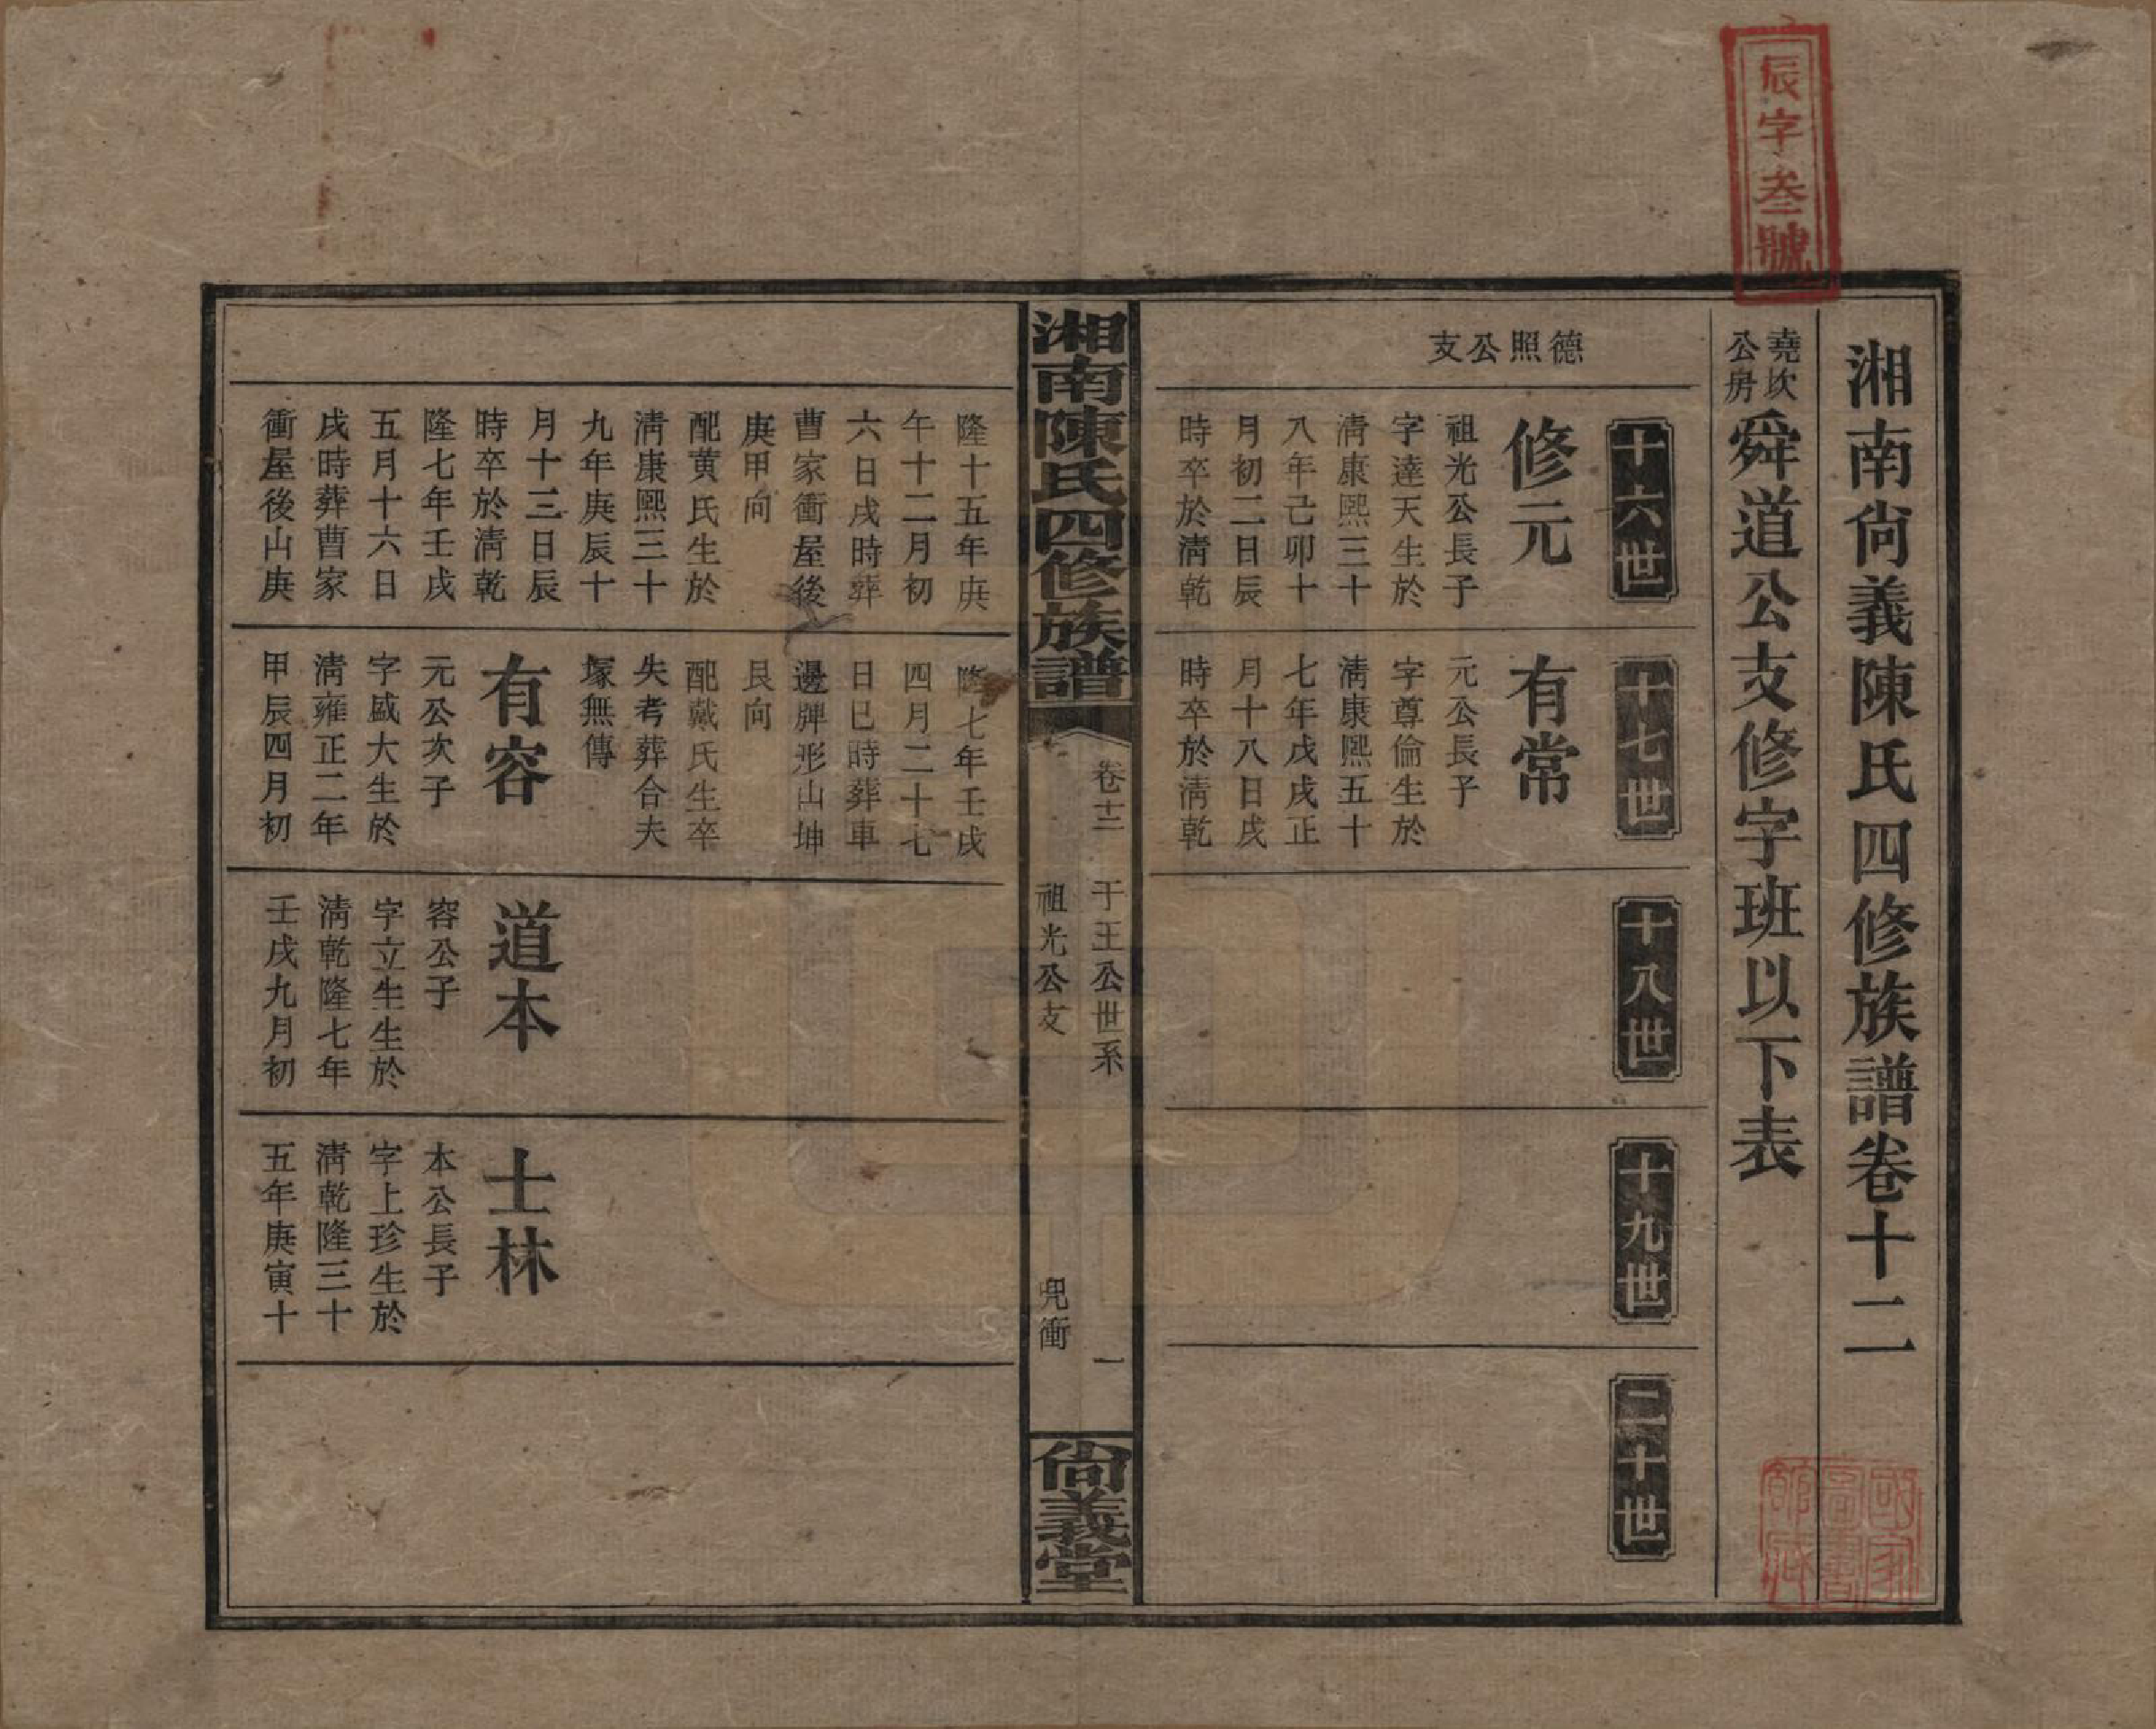 辰字叁號
湘南尙義陳氏四修族譜卷十二
堯坎
公房
舜道公支修字班以下表
德照公支
十六世
修元
祖光公長子
字達天生於
淸康熙三十
八年己卯十
月初二日辰
時卒於淸乾
十七世
有常
元公長子
字尊倫生於
淸康熙五十
七年戊戌正
月十八日戌
時卒於淸乾
十八世
十九世
二十世
湘南陳氏四修族譜
卷十二
于王公世系
祖光公支
兕衝
一
尙義堂
隆十五年庚
午十二月初
六日戌時葬
曹家衝屋後
庚甲向
配黄氏生於
淸康熙三十
九年庚辰十
月十三日辰
時卒於淸乾
隆七年壬戌
五月十六日
戌時葬曹家
衝屋後山庚
隆七年壬戌
四月二十七
日巳時葬車
邊牌形山坤
艮向
配戴氏生卒
失考葬合夫
塚無傳
有容
元公次子
字盛大生於
淸雍正二年
甲辰四月初
道本
容公子
字立生生於
淸乾隆七年
壬戌九月初
士林
本公長子
字上珍生於
淸乾隆三十
五年庚寅十
國家
圖書
館藏